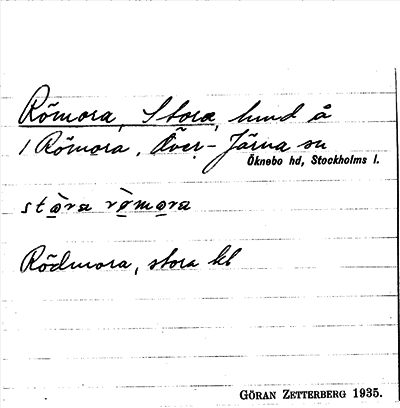 Römora, Stora, lund å
1 Römora, Över-Järna sn
Öknebo hd, Stockholms l.
stȯ̀ra rø̀mo̱ra
Rödmora, stora kl
GÖRAN ZETTERBERG 1935.